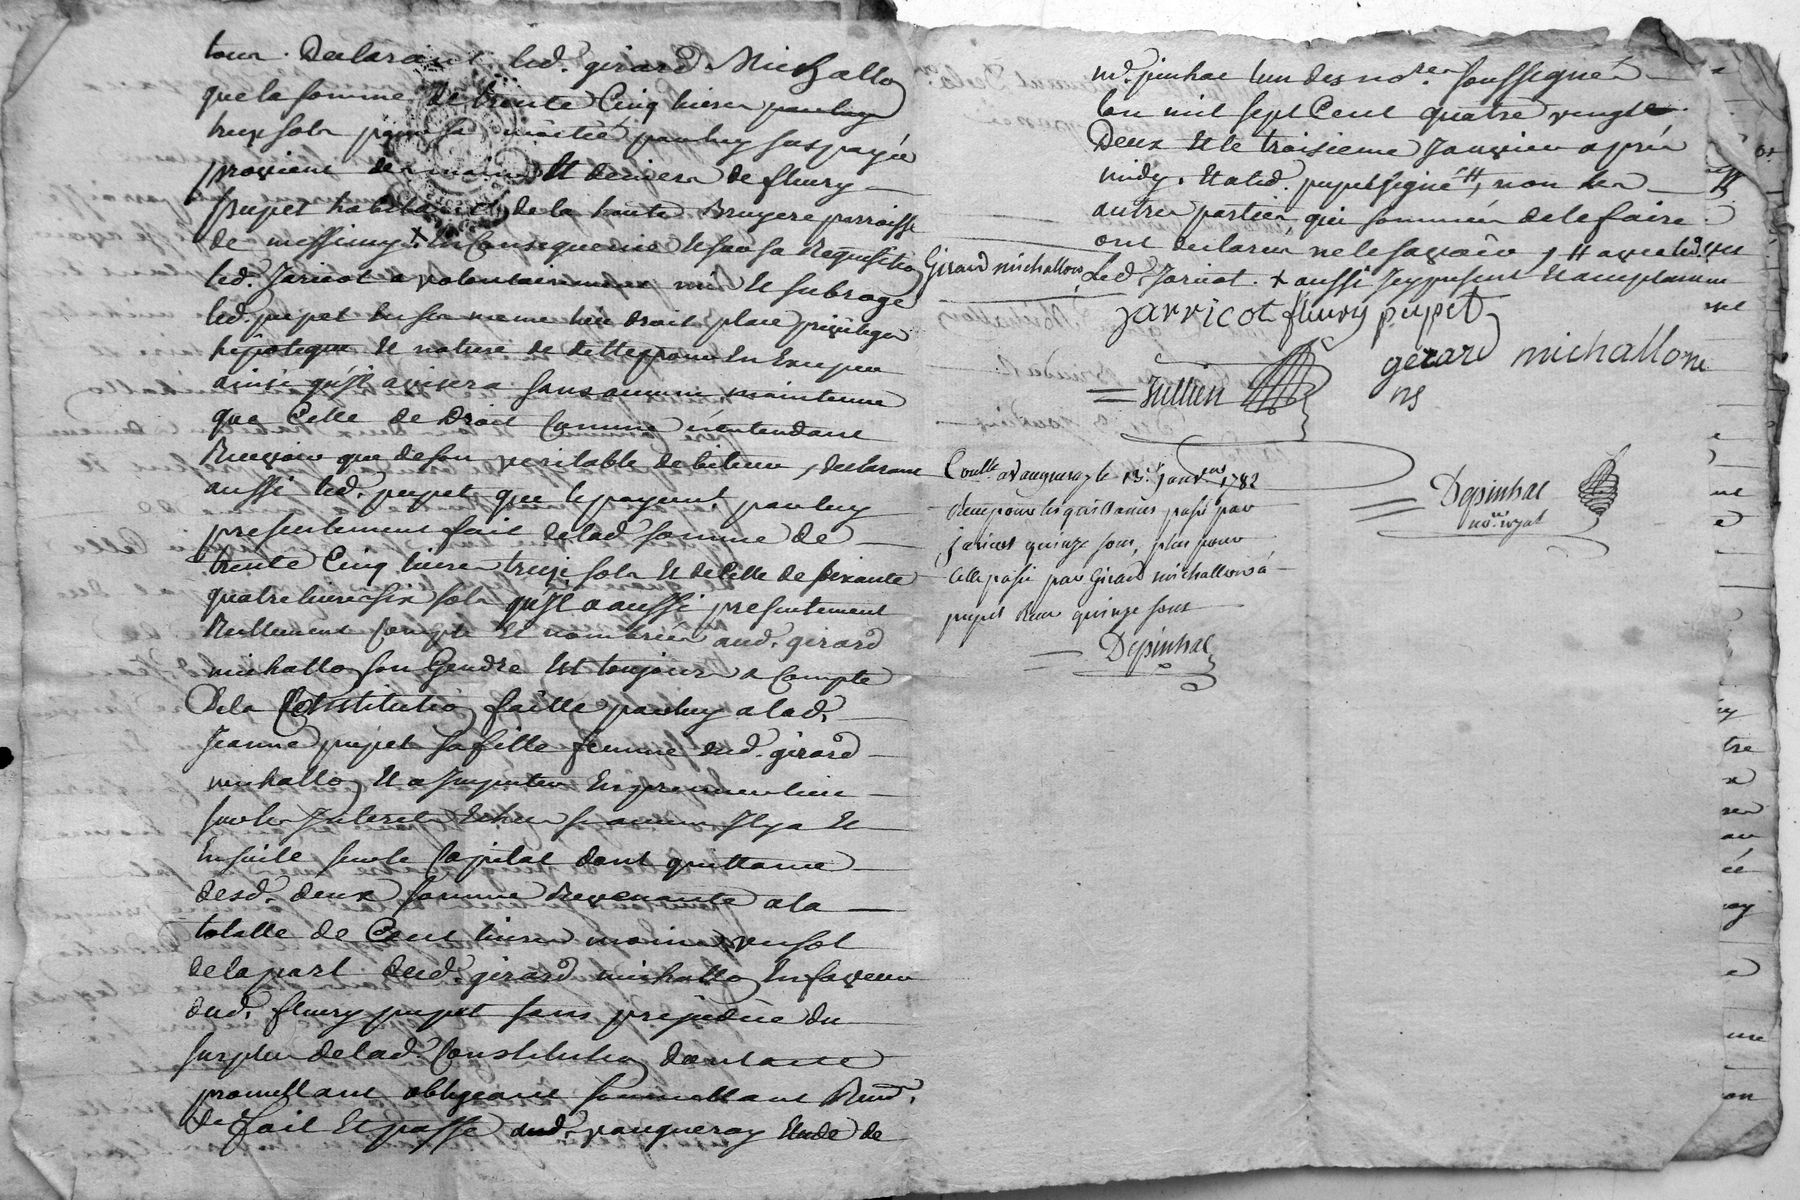 tour. Declarant led. girard Michallo
que la somme de trente Cinq livres
treize sols pour sa moitié par luy sus payée
provient des mains Et deniers de fleury
pupet habitant de la haute Bruyere parroisse
de messimy + En Consequence Et sur sa Requisition
led. Jaricot a volontairement mis Et subrogé
led. pupet En son meme lieu droit place privilege
hipoteque Et nature de dette pour En
ainsi qu'il avisera sans aucune maintenue
que Celle de Droit Comme n'entendant
Recevoir que de son veritable debiteur, declarant
aussi led. pupet que le payement par luy
presentement fait de lad. somme de
trente Cinq livres treize sols Et de Celle de soixante
quatre livres six sols qu'il a aussi presentement
Reellement Compté Et nombrée aud. girard
michallo son Gendre Est toujours a Compte
De la Constitution faitte par luy a lad.
Jeanne pupet sa fille femme dud. girard
michallo Et a Imputer En premier lieu
sur les Interets Echus si aucuns Il y a Et
Ensuite sur le Capital dont quittance
desd. deux sommes Revenante a la
totalle de Cent livres moins un sol
de la part dud. girard michallo En faveur
dud. fleury pupet sans prejudice du
surplus de lad. Constitution dont acte
promettant obligeant soumettant
De fait Et passé aud. vaugneray Etude de
md. pinhac l'un des nores. soussignés
l'an mil sept Cent quatre vingt
Deux Et le troisieme Janvier après
midy. Et a led. pupet signé #, non les
autres parties qui sommées de le faire
ont declaré ne le savoir, # avec led.
Girard michallon, Led. Jaricot. + aussi Icy present Et acceptant
jarricot fleury pupet
gerard michallon
Jullien
Conllé. a Vaugneray le 13. janvier 1782
Reçu pour les quittances passé par
jaricot quinze sous, plus pour
celle passé par Girard michallon à
pupet Reçu quinze sous
Depinhac
Depinhac
nore. royal